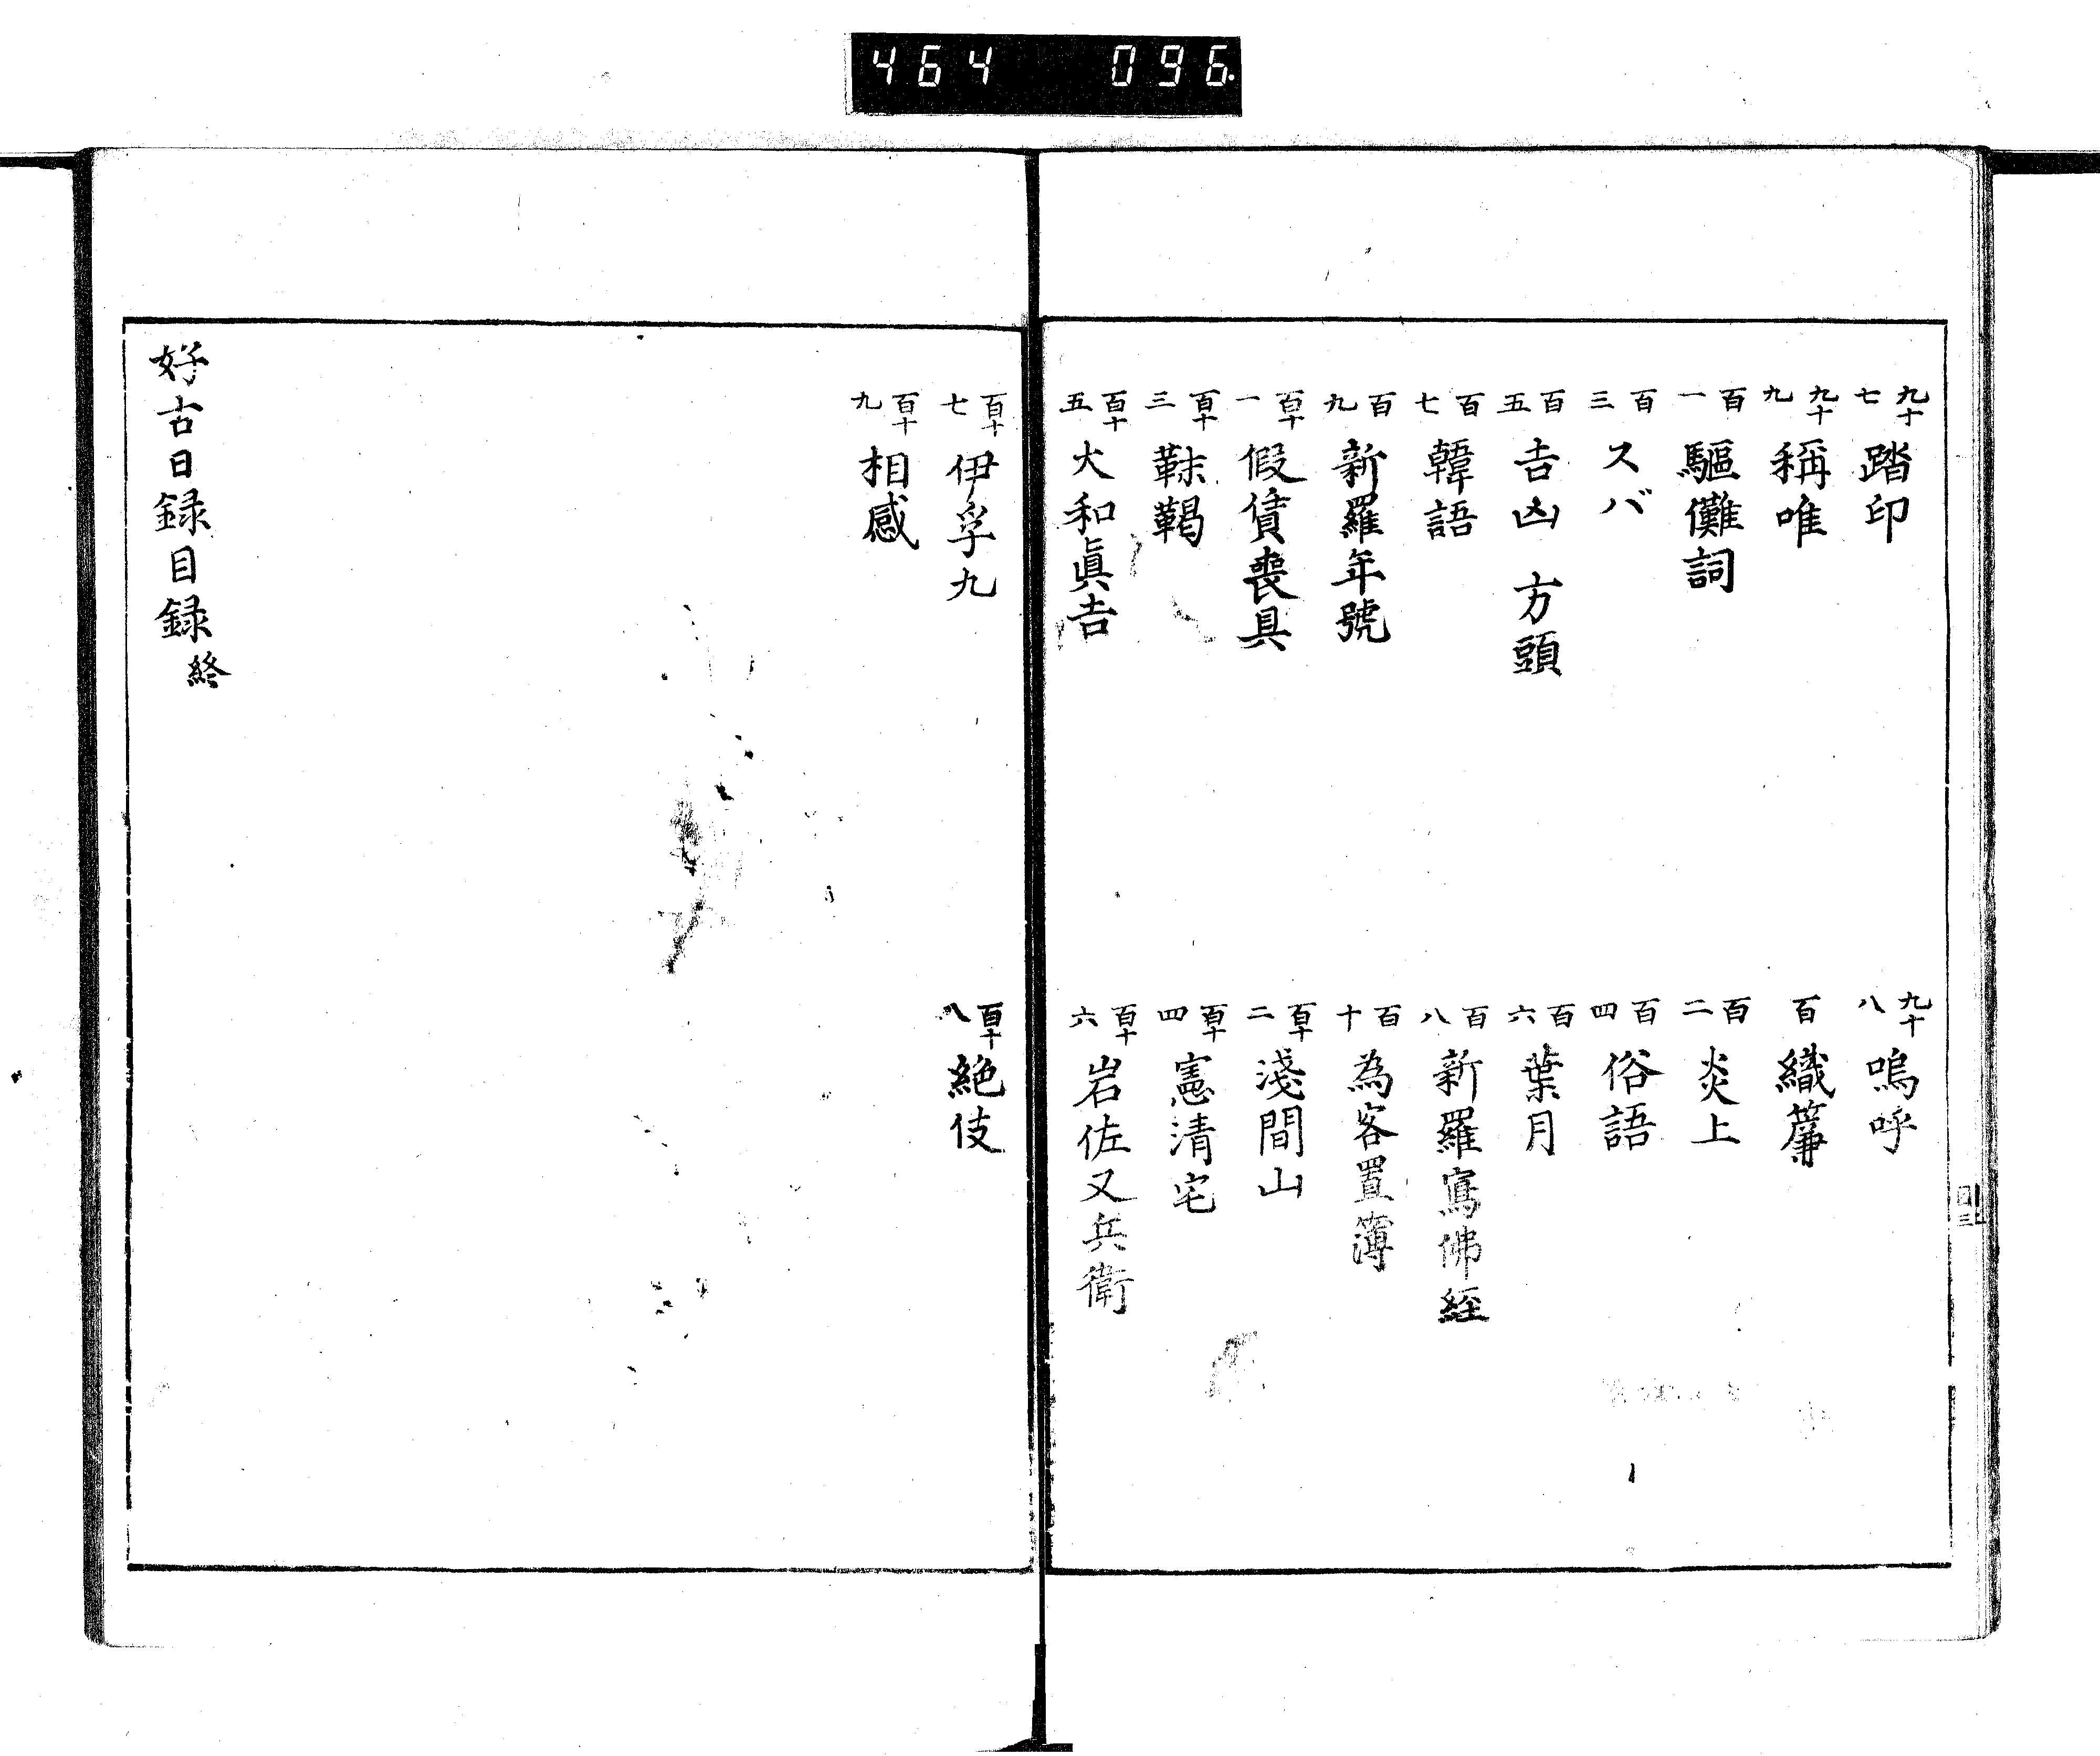 464 096.
九十七 踏印
九十八 嗚呼
九十九 稱唯
百 織簾
百一 驅儺詞
百二 炎上
百三 スバ
百四 俗語
百五 吉凶 方頭
百六 葉月
百七 韓語
百八 新羅寫佛經
百九 新羅年號
百十 為客置簿
百十一 假賃喪具
百十二 淺間山
百十三 靺鞨
百十四 憲清宅
百十五 大和眞吉
百十六 岩佐又兵衛
百十七 伊孚九
百十八 絶伎
百十九 相感
好古日録目録終